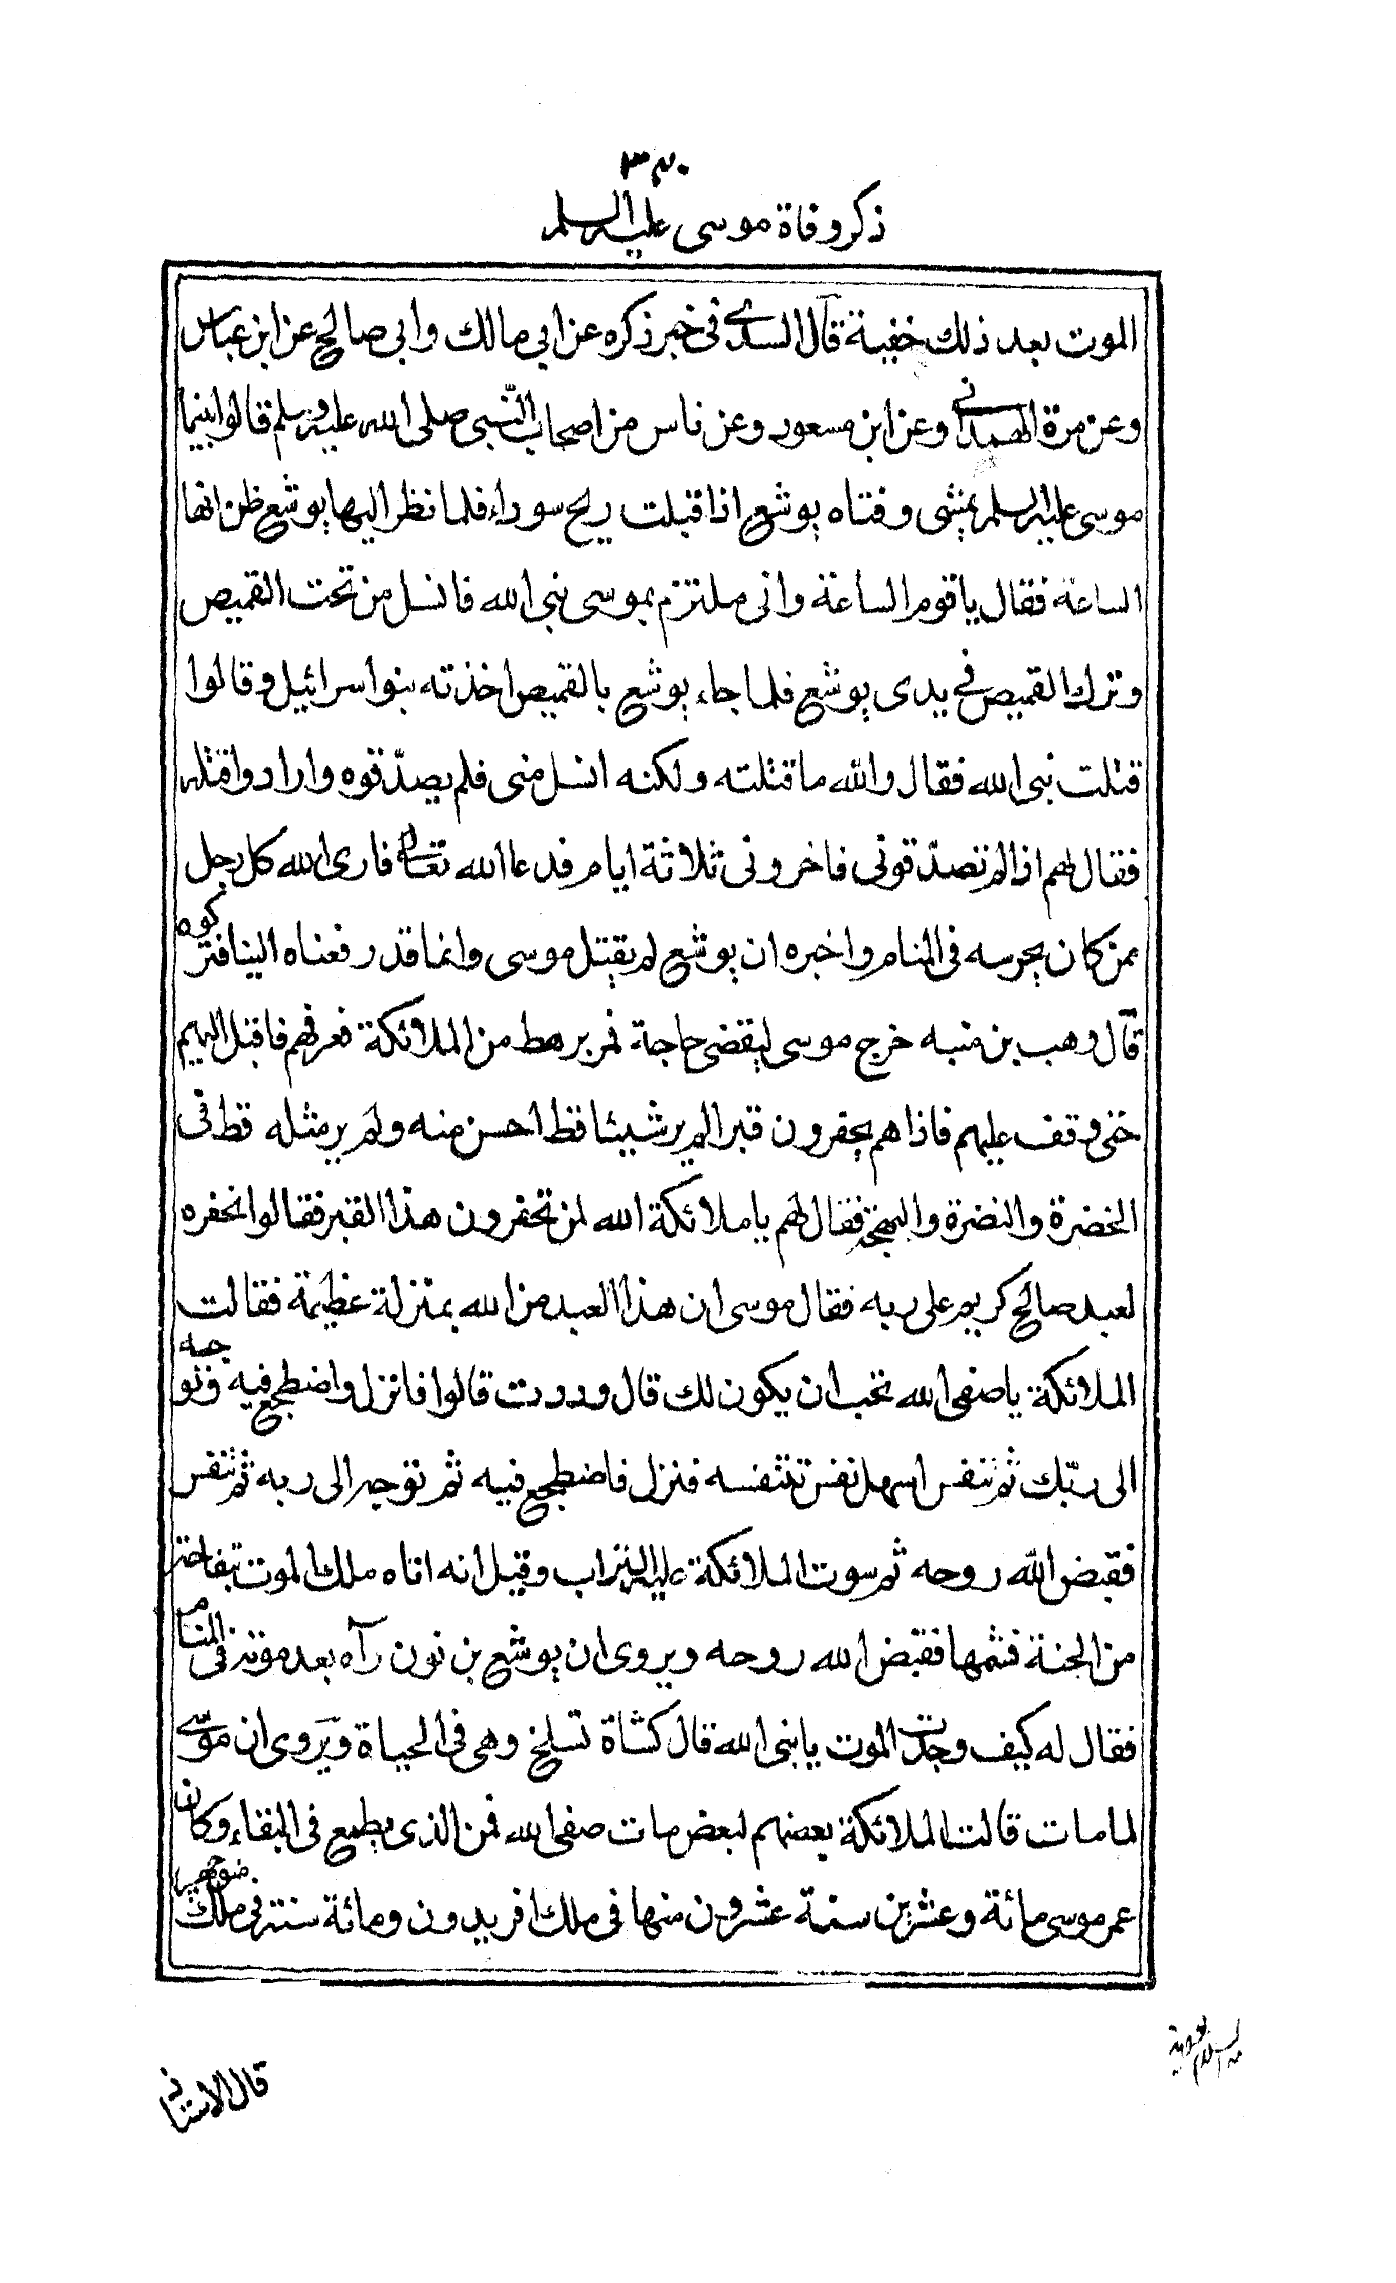 ٣٢٠
ذكر وفاة موسى عليه السلم
الموت بعد ذلك خفية قال السدى فى خبر ذكره عن ابي مالك وابي صالح عن ابن عباس
وعن مرة الهمدانى وعن ابن مسعود وعن ناس من اصحاب النبى صلى الله عليه وسلم قالوا بينما
موسى عليه السلم يمشى وفتاه يوشع اذ اقبلت ريح سوداء فلما نظر اليها يوشع ظن انها
الساعة فقال يا قوم الساعة وانى ملتزم بموسى نبى الله فانسل من تحت القميص
وترك القميص في يدى يوشع فلما جاء يوشع بالقميص اخذته بنو اسرائيل وقالوا
قتلت نبى الله فقال والله ما قتلته ولكنه انسل منى فلم يصدّقوه وارادوا قتله
فقال لهم اذا لم تصدّقونى فاخرونى ثلاثة ايام فدعا الله تعالى فارى الله كل رجل
ممن كان يحرسه فى المنام واخبره ان يوشع لم يقتل موسى وانما قد رفعناه الينا فتركوه
قال وهب بن منبه خرج موسى ليقضى حاجة فمر برهط من الملائكة فعرفهم فاقبل اليهم
حتى وقف عليهم فاذا هم يحفرون قبرا لم ير شيئا قط احسن منه ولم ير مثله قط فى
الخضرة والنضرة والبهجة فقال لهم يا ملائكة الله لمن تحفرون هذا القبر فقالوا نحفره
لعبد صالح كريم على ربه فقال موسى ان هذا العبد من الله بمنزلة عظيمة فقالت
الملائكة يا صفى الله تحب ان يكون لك قال وددت قالوا فانزل واضطجع فيه وتوجه
الى ربّك ثم تنفس اسهل نفس تتنفسه فنزل فاضطجع فيه ثم توجه الى ربه ثم تنفس
فقبض الله روحه ثم سوت الملائكة عليه التراب وقيل انه اتاه ملك الموت بتفاحة
من الجنة فشمها فقبض الله روحه ويروى ان يوشع بن نون رآه بعد موته فى المنام
فقال له كيف وجدت الموت يا نبى الله قال كشاة تسلخ وهى فى الحياة ويروى ان موسى
لما مات قالت الملائكة بعضهم لبعض مات صفى الله فمن الذى يطمع فى البقاء وكان
عمر موسى مائة وعشرين سنة عشرون منها فى ملك افريدون ومائة سنة فى ملك منوجهر
قال الاستاذ